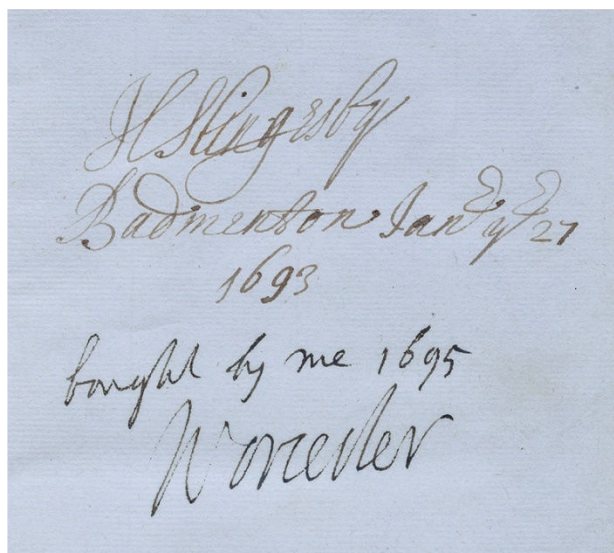 H Slingesby
Badmenton Jan^e y^e 27
1693
bought by me 1695
Worcester